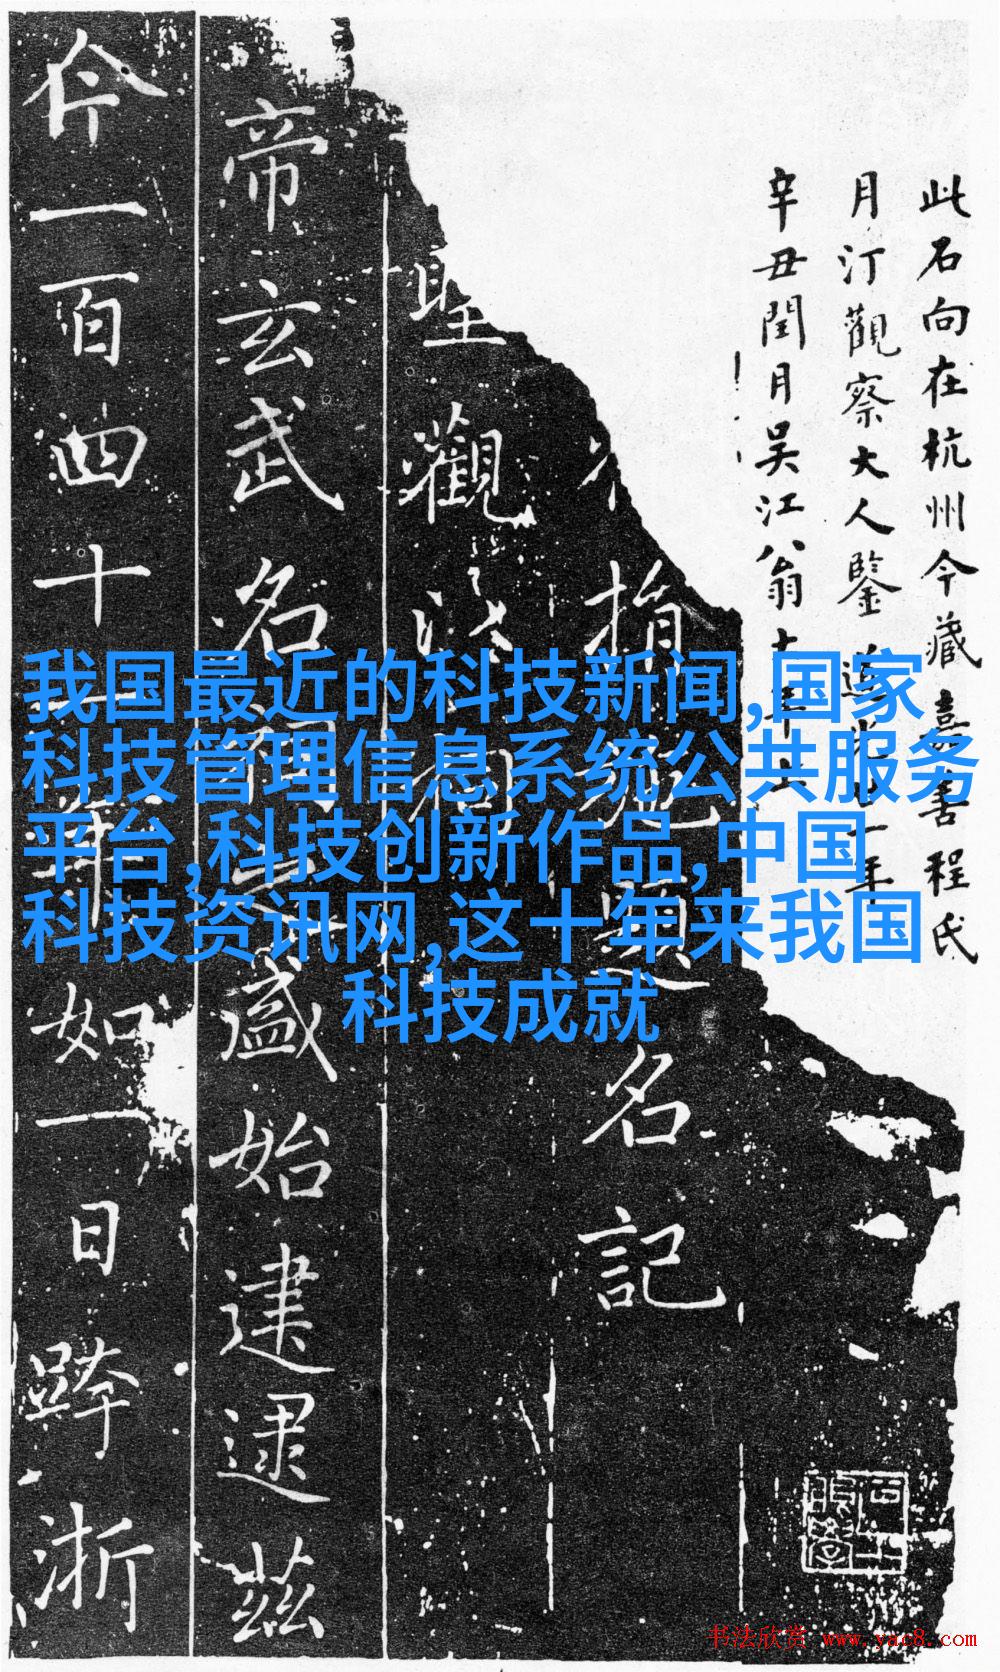 此石向在杭州今藏嘉善程氏
月汀觀察大人鑒 道光廿一年
辛丑閏月吳江翁大年
指 題名記
聖觀
帝玄武名祠之盛始建逮茲
今一百四十 年如一日跨浙
我国最近的科技新闻,国家
科技管理信息系统公共服务
平台,科技创新作品,中国
科技资讯网,这十年来我国
科技成就
书法欣赏 www.yac8.com